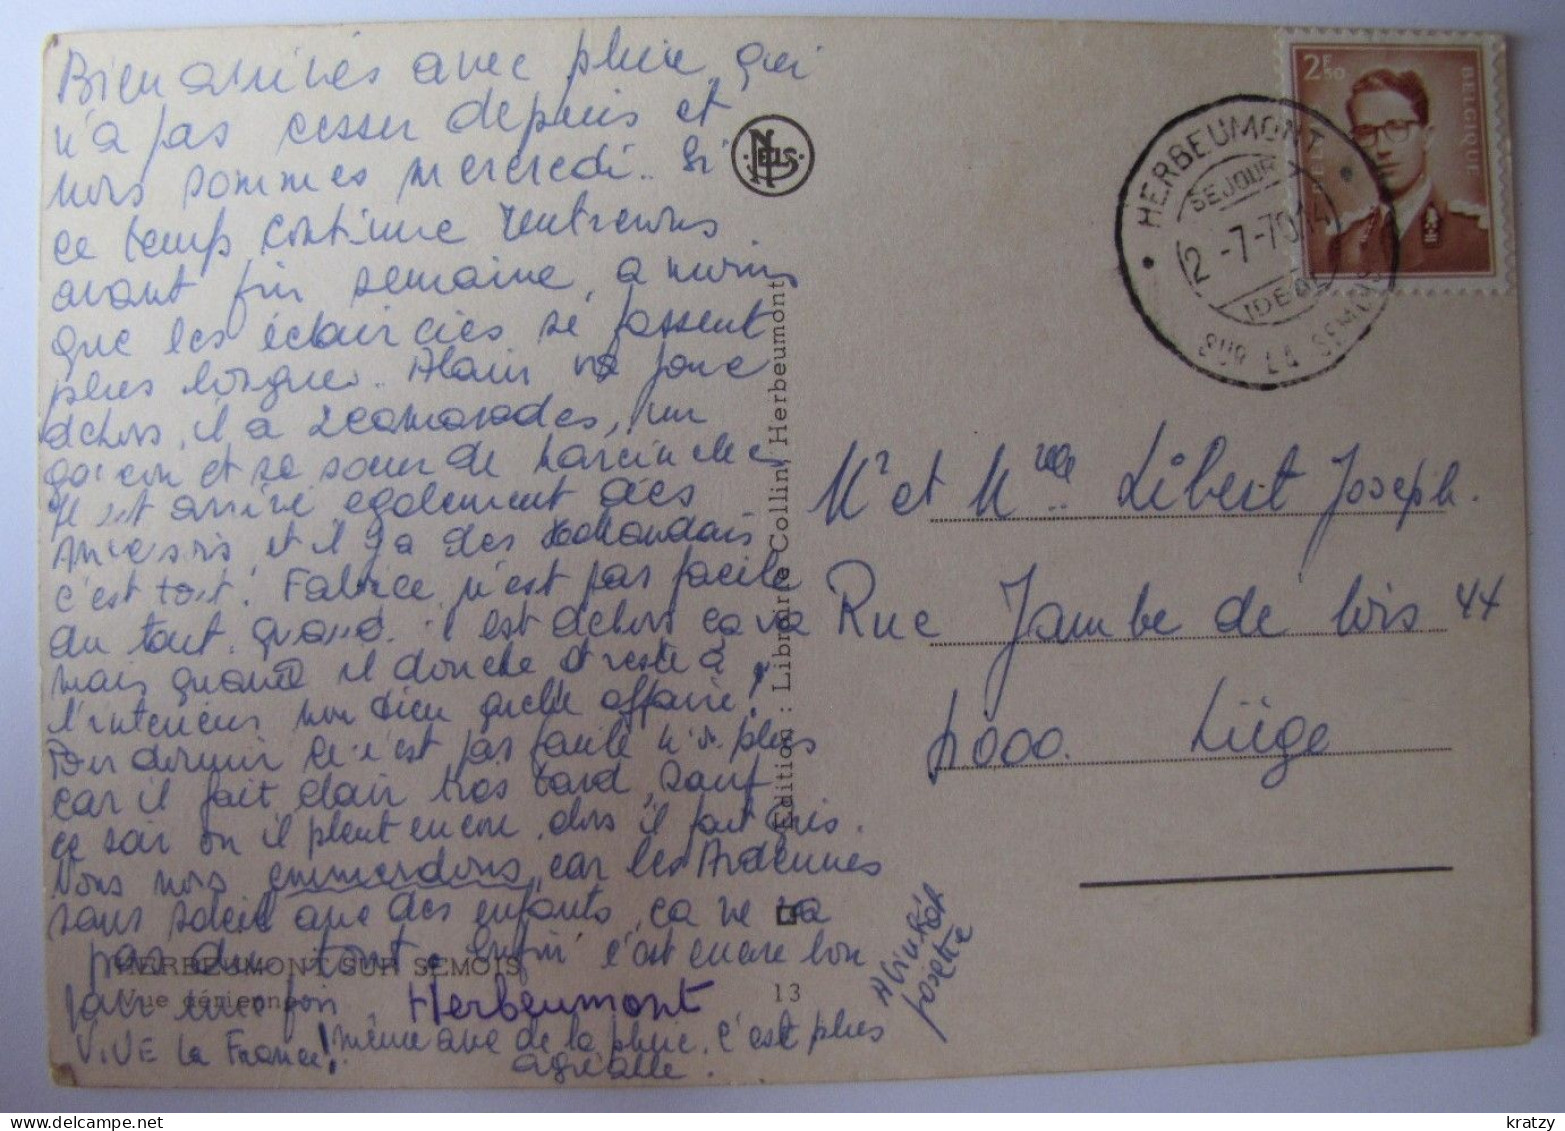 Bien arrivés avec pluie, qui
n'a pas cesser depuis et
nous sommes mercredi.. Si
ce temps continue rentrerons
avant fin semaine, a moins
que les éclaircies se fassent
plus longues.. Alain va joue
dehors, il a 2 camarades, un
garçon et sa soeur de Marcinelle
Il est arrivé egalement des
et il y a des Hollandais
c'est tout! Fabrice n'est pas facile
du tout. quand il est dehors ca va
mais quand il douche et reste à
l'interieur mon dieu quelle affaire!
Pour dormir ce n'est pas facile non plus
car il fait clair tros tard, sauf
ce soir on il pleut encore, alors il fait gris.
Nous nous emmerdons, car les Ardennes
sans soleil avec des enfants, ca ne va
pas du tout. enfin c'est encore bon
pour une fois. Herbeumont
VIVE la France! même avec de la pluie. c'est plus
agréable.
Josette
NELS
Edition : Librairie Collin, Herbeumont
HERBEUMONT SUR SEMOIS
Vue aérienne
13
2F50
BELGIQUE
HERBEUMONT
SEJOUR
2-7-70 14
IDEAL
SUR LA SEMOIS
Mr et Mme Libert Joseph.
Rue Jambe de bois 44
4000. Liège
www.delcampe.net
kratzy